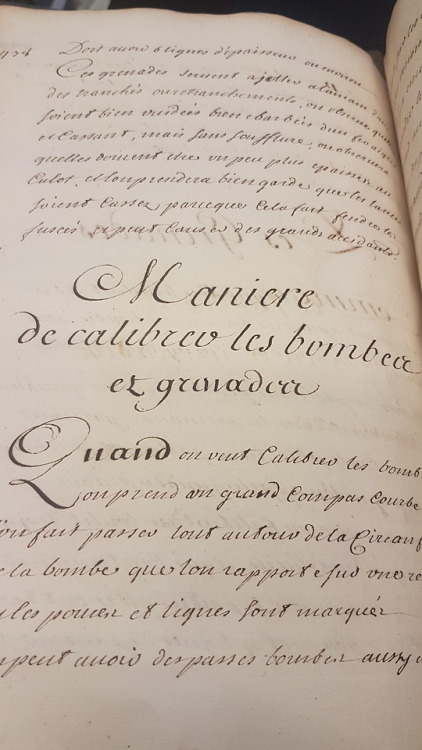 Doit avoir 6 lignes d'epaisseur ou environ
Ces grenades servent a jetter a la main dans
des tranchés ou retranchements, on observe quelles
soient bien vuidées bien ebarbées d'un fer aigre
et Cassant, mais sans soufflure, on observera
quelles doivent etre un peu plus epaisses au
Culot, et l'on prendera bien garde que les lum
soient Cassez parceque Cela fait fendre les
fuscés et peut Causer des grands accidants.
Maniere
de calibrer les bombes
et grenades
Quand on veut Calibrer les bomb
l'on prend un grand Compas Courbe
l'on fait passer tout autour de la Circonf
de la bombe que l'on rapporte sur une re
les pouces et lignes sont marqués
peut avoir des passes bombes aussy